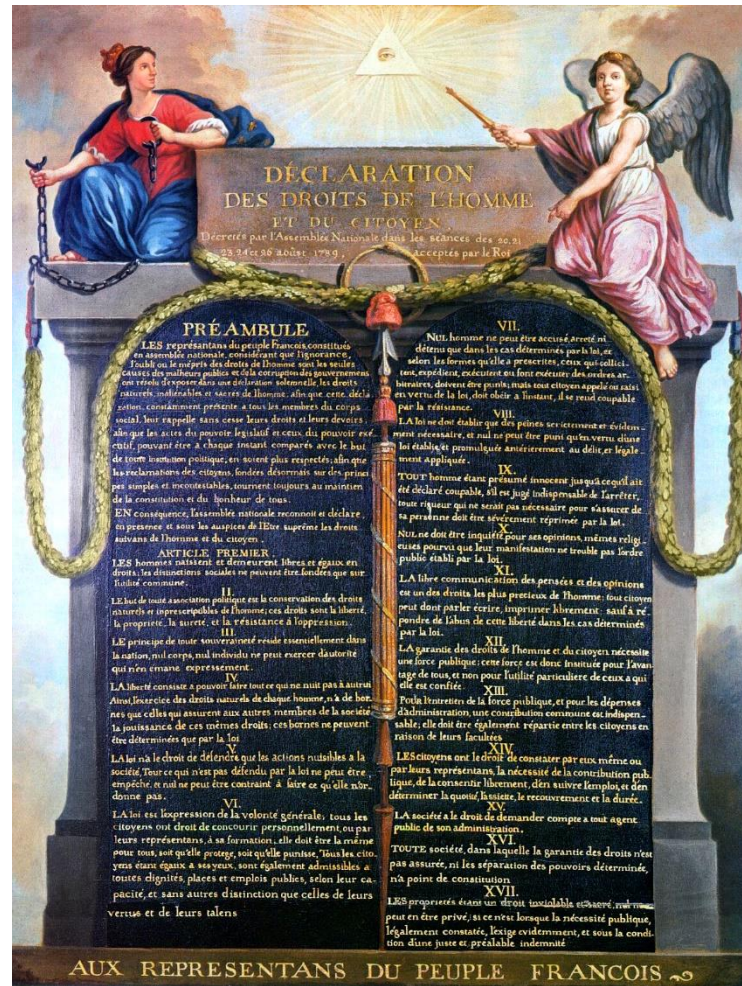 DÉCLARATION
DES DROITS DE L'HOMME
ET DU CITOYEN,
Décretés par l'Assemblée Nationale dans les séances des 20. 21
23. 24 et 26 août 1789, acceptés par le Roi
PRÉAMBULE
LES représantans du peuple Francois, constitués
en assemblée nationale, considérant que l'ignorance,
l'oubli ou le mépris des droits de l'homme sont les seules
causes des malheurs publics et de la corruption des gouvernemens
ont résolu d'exposer dans une déclaration solemnelle, les droits
naturels, inaliénables et sacrés de l'homme: afin que cette décla
ration, constamment présente a tous les membres du corps
social, leur rappelle sans cesse leurs droits et leurs devoirs
afin que les actes du pouvoir législatif et ceux du pouvoir exé
cutif, pouvant être à chaque instant comparés avec le but
de toute institution politique, en soient plus respectés; afin que
les reclamations des citoyens, fondées désormais sur des princi
pes simples et incontestables, tournent toujours au maintien
de la constitution et du bonheur de tous.
EN conséquence, l'assemblée nationale reconnoit et déclare,
en presence et sous les auspices de l'Etre suprême les droits
suivans de l'homme et du citoyen.
ARTICLE PREMIER
LES hommes naissent et demeurent libres et égaux en
droits; les distinctions sociales ne peuvent être fondées que sur
l'utilité commune.
II.
LE but de toute association politique est la conservation des droits
naturels et inprescriptibles de l'homme; ces droits sont la liberté,
la propriete, la sureté, et la résistance à l'oppression.
III.
LE principe de toute souveraineté réside essentiellement dans
la nation, nul corps, nul individu ne peut exercer d'autorité
qui n'en emane expressement.
IV.
LA liberté consiste a pouvoir faire tout ce qui ne nuit pas à autrui
Ainsi, l'exercice des droits naturels de chaque homme, n'a de bor-
nes que celles qui assurent aux autres membres de la société
la jouissance de ces mêmes droits; ces bornes ne peuvent
être déterminées que par la loi
V.
LA loi n'a le droit de défendre que les actions nuisibles a la
société. Tout ce qui n'est pas défendu par la loi ne peut être
empêché, et nul ne peut être contraint à faire ce qu'elle n'or-
donne pas.
VI.
LA loi est l'expression de la volonté générale; tous les
citoyens ont droit de concourir personnellement, ou par
leurs représentans, à sa formation; elle doit être la même
pour tous, soit qu'elle protege, soit qu'elle punisse. Tous les cito
yens étant égaux à ses yeux, sont également admissibles a
toutes dignités, places et emplois publics, selon leur ca-
pacité, et sans autres distinction que celles de leurs
vertus et de leurs talens
VII.
NUL homme ne peut être accusé, arreté ni
détenu que dans les cas déterminés par la loi, et
selon les formes qu'elle a prescrites, ceux qui sollici-
tent, expédient, exécutent ou font exécuter des ordres ar-
bitraires, doivent être punis; mais tout citoyen appelé ou saisi
en vertu de la loi, doit obéir a l'instant, il se rend coupable
par la résistance.
VIII.
LA loi ne doit établir que des peines strictement et évidem-
ment nécessaire, et nul ne peut être puni qu'en vertu d'une
loi établie et promulguée antérierement au délit, et légale-
ment appliquée.
IX.
TOUT homme étant présumé innocent jusqu'à ce qu'il ait
été déclaré coupable, s'il est jugé indispensable de l'arrêter,
toute rigueur qui ne serait pas nécessaire pour s'assurer de
sa personne doit être sévèrement réprimée par la loi.
X.
NUL ne doit être inquiété pour ses opinions, mêmes religi-
euses pourvu que leur manifestation ne trouble pas l'ordre
public établi par la loi.
XI.
LA libre communication des pensées et des opinions
est un des droits les plus precieux de l'homme: tout citoyen
peut dont parler écrire, imprimer librement: sauf à ré-
pondre de l'abus de cette liberté dans les cas déterminés
par la loi.
XII.
LA garantie des droits de l'homme et du citoyen nécessite
une force publique: cette force est donc instituée pour l'avan-
tage de tous, et non pour l'utilité particuliere de ceux a qui
elle est confiée.
XIII.
Pour l'entretien de la force publique, et pour les dépenses
d'administration, une contribution commune est indispen-
sable; elle doit être également répartie entre les citoyens en
raison de leurs facultées
XIV.
LES citoyens ont le droit de constater par eux même ou
par leurs représentans, la nécessité de la contribution pub-
lique, de la consentir librement, d'en suivre l'emploi, et d'en
déterminer la quotité, l'assiette, le recouvrement et la durée.
XV.
LA société a le droit de demander compte a tout agent
public de son administration.
XVI.
TOUTE société, dans laquelle la garantie des droits n'est
pas assurée, ni les séparation des pouvoirs déterminée,
n'a point de constitution
XVII.
LES proprietés étant un droit inviolable et sacré, nul ne
peut en être privé, si ce n'est lorsque la nécessité publique,
légalement constatée, l'exige evidemment, et sous la condi-
tion d'une juste et préalable indemnité
AUX REPRESENTANS DU PEUPLE FRANCOIS